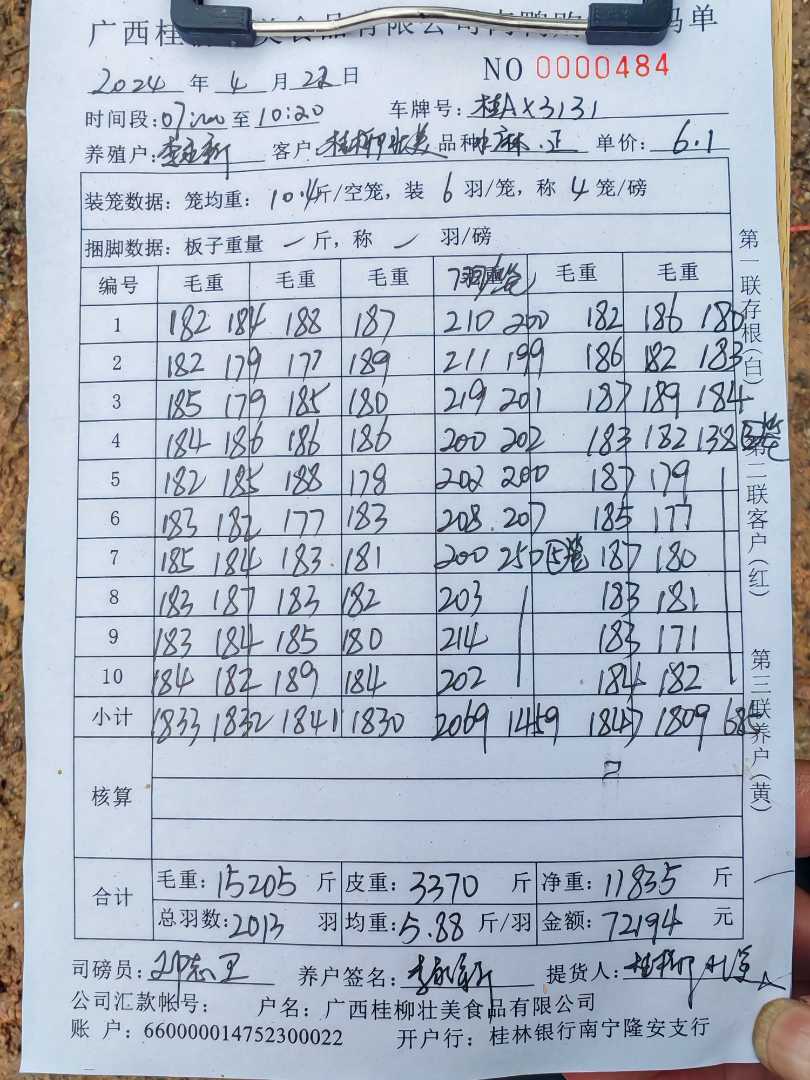 广西桂 美食品有限公司肉鸭购 码单
2024 年 4 月 22 日 NO 0000484
时间段: 07:00 至 10:20 车牌号: 桂AX3131
养殖户: 李 新 客户: 桂柳壮美 品种 麻.正 单价: 6.1
装笼数据: 笼均重: 10.4 斤/空笼, 装 6 羽/笼, 称 4 笼/磅
捆脚数据: 板子重量 一 斤, 称 一 羽/磅
编号 毛重 毛重 毛重 7羽/笼 毛重 毛重
1 182 184 188 187 210 200 182 186 180
2 182 179 177 189 211 199 186 182 183
3 185 179 185 180 219 201 187 189 184
4 184 186 186 186 200 202 183 182 138 ③笼
5 182 185 188 178 202 200 187 179
6 183 182 177 183 208 207 185 177
7 185 184 183 181 200 250 ⑤笼 187 180
8 183 187 183 182 203 183 181
9 183 184 185 180 214 183 171
10 184 182 189 184 202 184 182
小计 1833 1832 1841 1830 2069 1459 1847 1809 685
核算
合计
毛重: 15205 斤 皮重: 3370 斤 净重: 11835 斤
总羽数: 2013 羽 均重: 5.88 斤/羽 金额: 72194 元
司磅员: 志 养户签名: 李 新 提货人: 桂柳壮美
公司汇款帐号: 户名: 广西桂柳壮美食品有限公司
账 户: 660000014752300022 开户行: 桂林银行南宁隆安支行
第一联存根(白)
第二联客户(红)
第三联养户(黄)